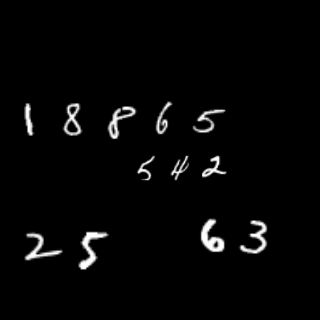 18865
542
25 63